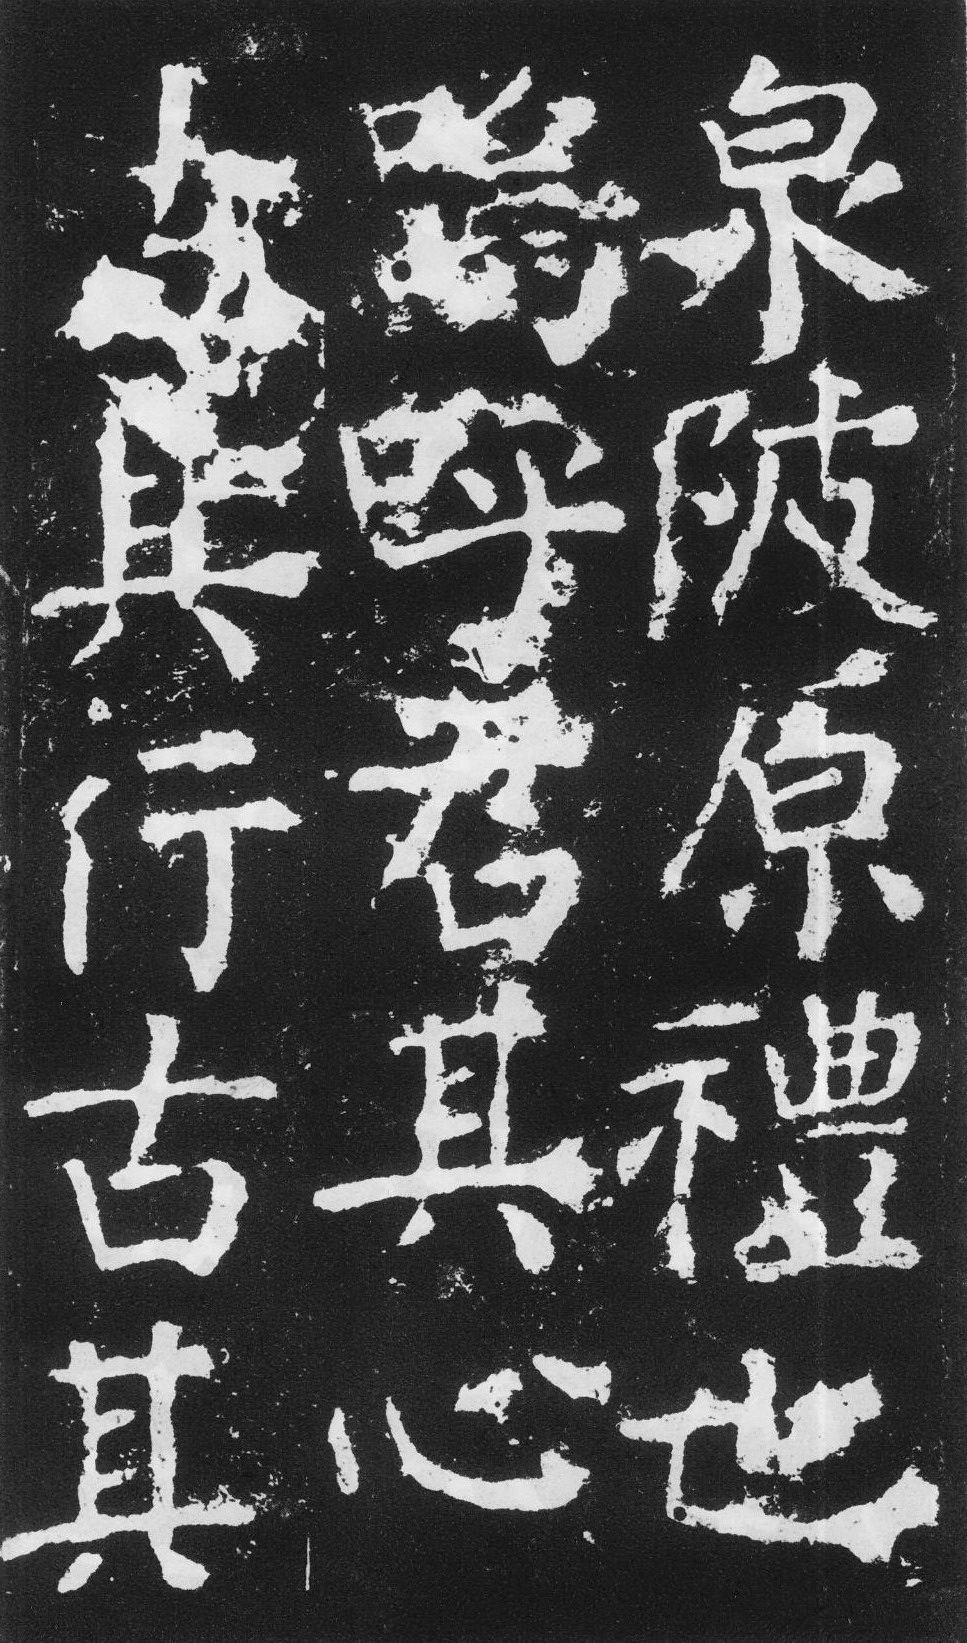 泉陂原禮也
嗚呼君其心
如其行古其